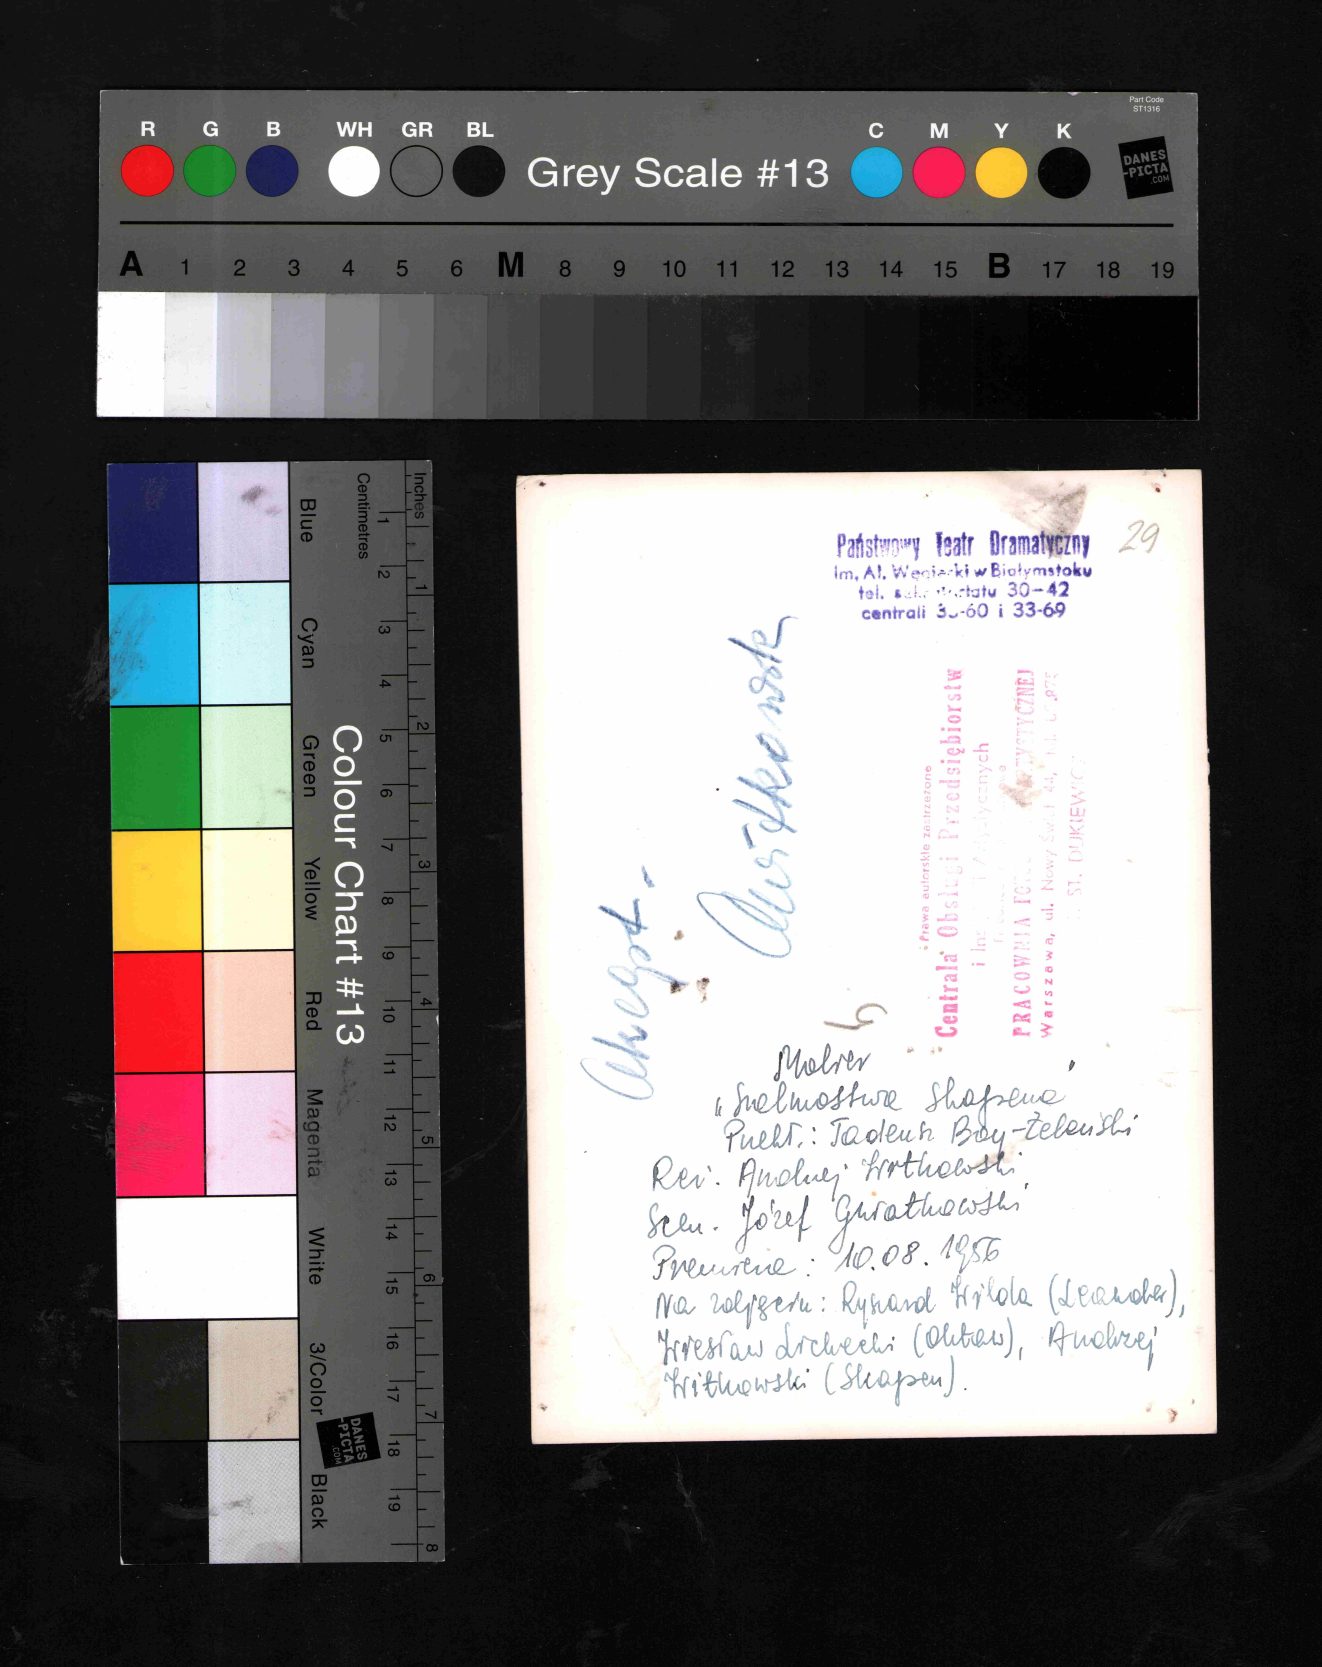 Part Code
ST1316
R G B WH GR BL C M Y K
Grey Scale #13
DANES
-PICTA
.COM
A 1 2 3 4 5 6 M 8 9 10 11 12 13 14 15 B 17 18 19
Colour Chart #13
Blue
Cyan
Green
Yellow
Red
Magenta
White
3/Color
Black
Centimetres
1 2 3 4 5 6 7 8 9 10 11 12 13 14 15 16 17 18 19
Inches
1 2 3 4 5 6 7 8
DANES
-PICTA
.COM
29
Państwowy Teatr Dramatyczny
im. Al. Węgierki w Białymstoku
tel. 30-42
centrali 60 i 33-69
Prawa autorskie zastrzeżone
Centrala Obsługi Przedsiębiorstw
i Artystycznych
PRACOWNIA ARTYSTYCZNEJ
Warszawa, ul. Nowy Świat 44,
ST. DUKIEWICZ
Akcept.
AWitkowski
Molier
„Szelmostwa Skapena"
Przekł.: Tadeusz Boy-Żeleński
Reż. Andrzej Witkowski
Scen. Józef Gwiatkowski
Premiera: 10.08.1956
Na zdjęciu: Ryszard Wilda (Leander),
Wiesław Lichecki (Oktaw), Andrzej
Witkowski (Skapen).